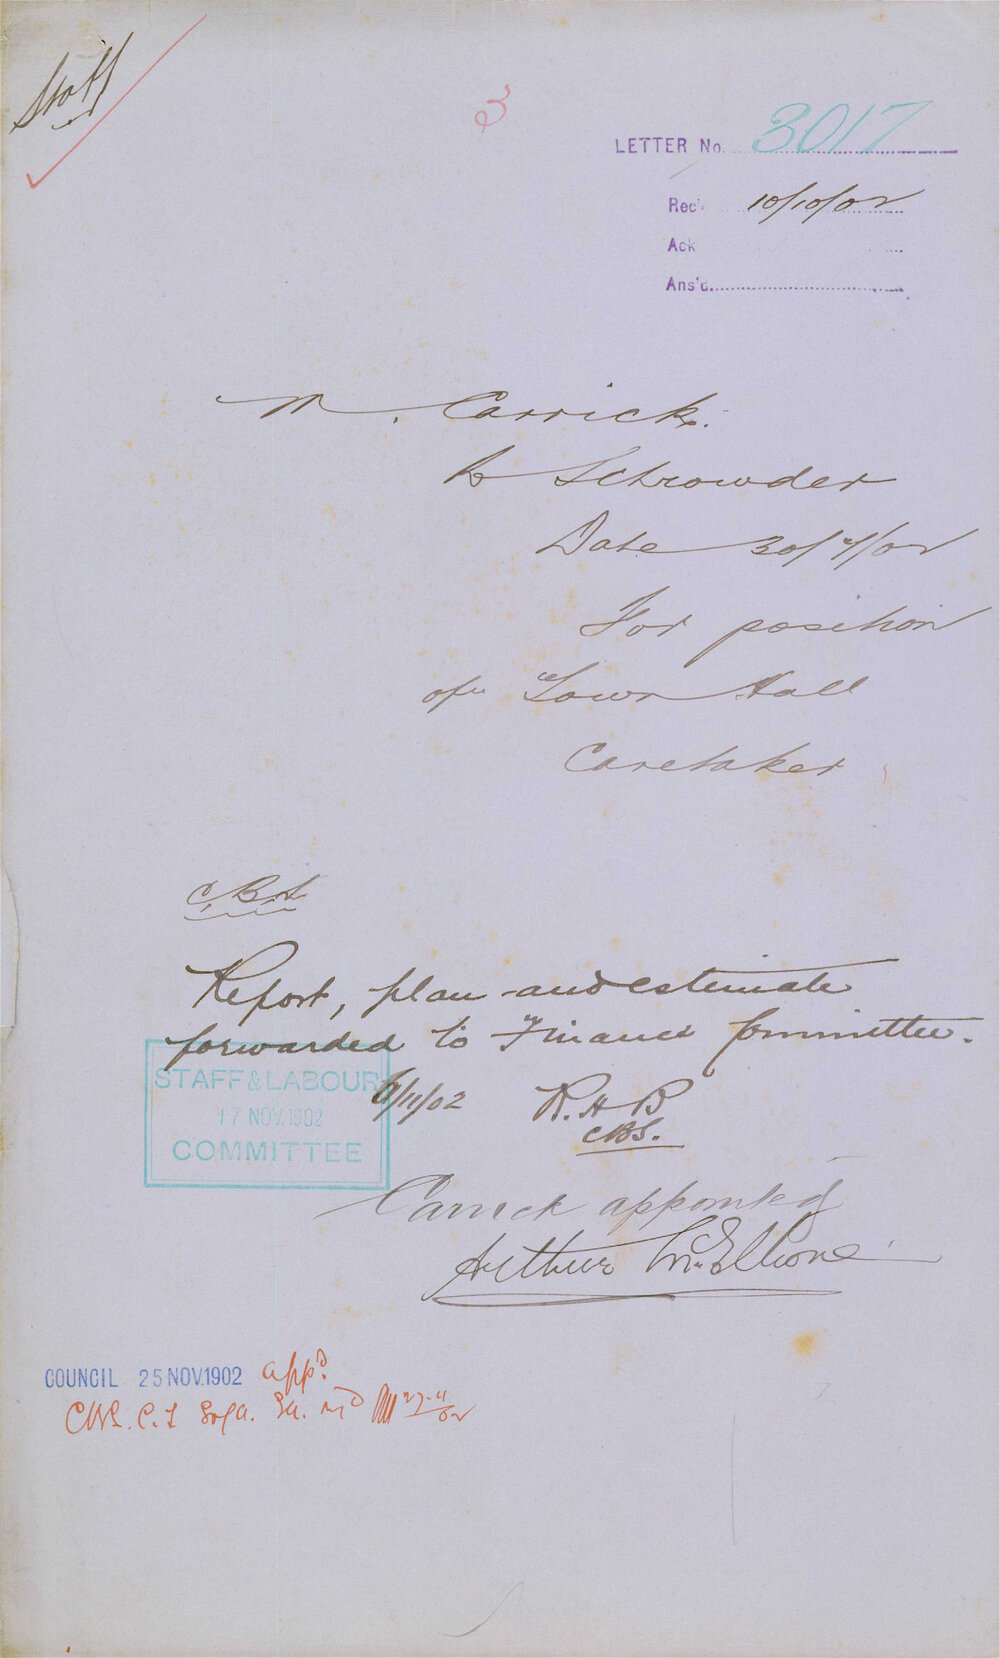 Staff
3
LETTER No. 3017
Rec'd 10/10/02
Ack
Ans'd.
M. Carrick.
to Schrowder
Date 30/9/02
For position
of Town Hall
Caretaker
C.B.S
Report, plan and estimate
forwarded to Finance Committee.
6/11/02 R.H.B
CBS.
STAFF & LABOUR
17 NOV. 1902
COMMITTEE
Carrick appointed
Arthur McElhone
COUNCIL 25 NOV. 1902 appd.
CBS. C.I